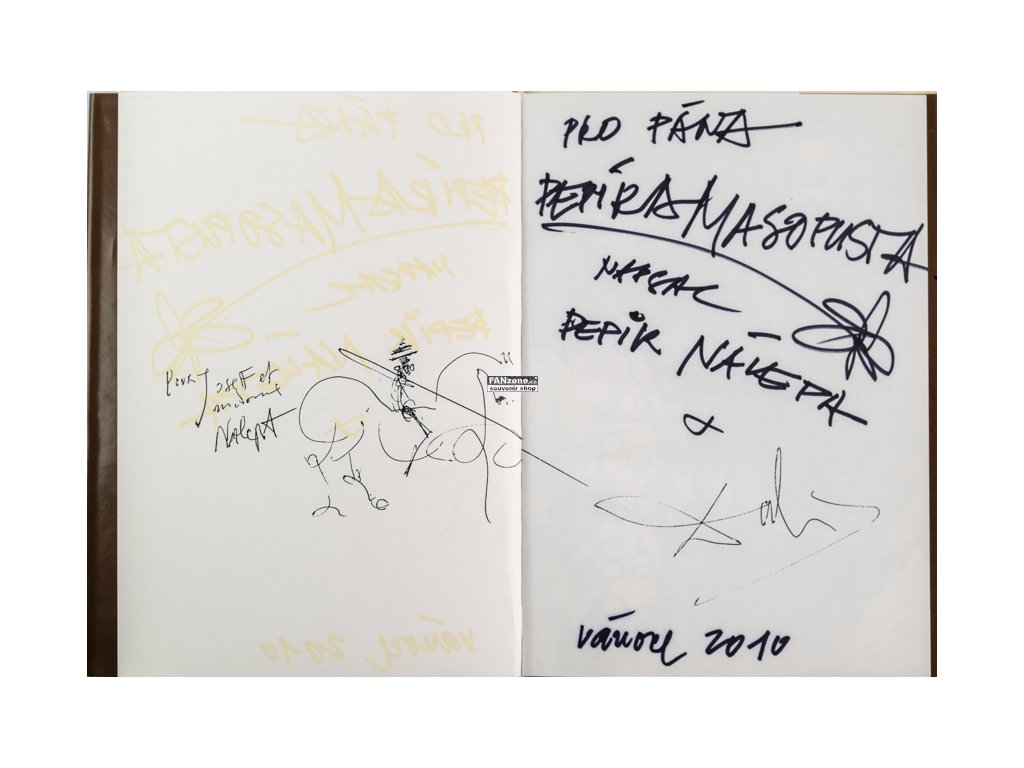 Pour Josef et
Nalepa
FANzone.cz
souvenir shop
PRO PÁNA
PEPÍRA MASOPUSTA
NAPSAL
PEPIK NÁLEPA
&
Dalí
vánoce 2010